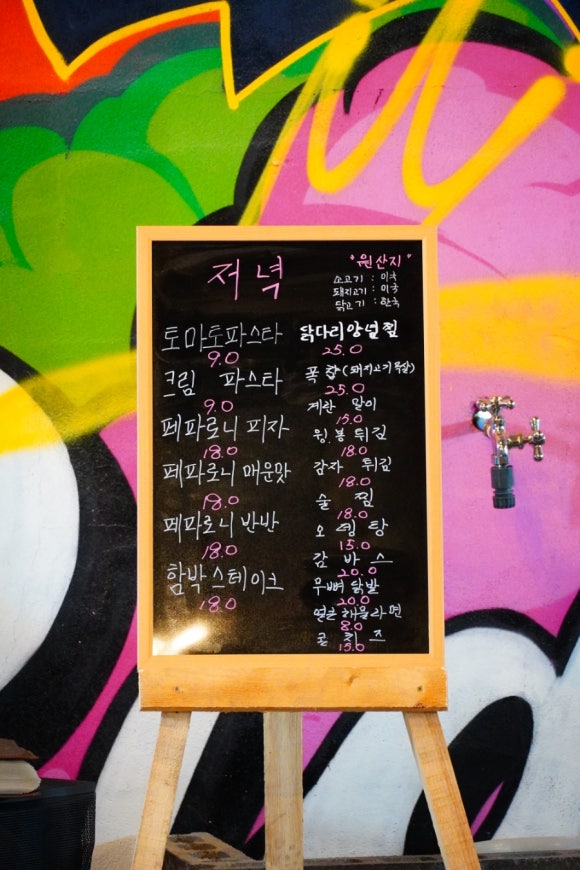 저녁
"원산지"
소고기 : 미국
돼지고기 : 미국
닭고기 : 한국
토마토파스타
9.0
크림 파스타
9.0
페파로니 피자
18.0
페파로니 매운맛
18.0
페파로니 반반
18.0
함박스테이크
18.0
닭다리양념찜
25.0
폭찹(돼지고기목살)
25.0
계란 말이
15.0
윙.봉 튀김
18.0
감자 튀김
18.0
술 찜
18.0
오 뎅 탕
15.0
감 바 스
20.0
무뼈 닭발
20.0
얼큰해물라면
8.0
콘 치 즈
15.0